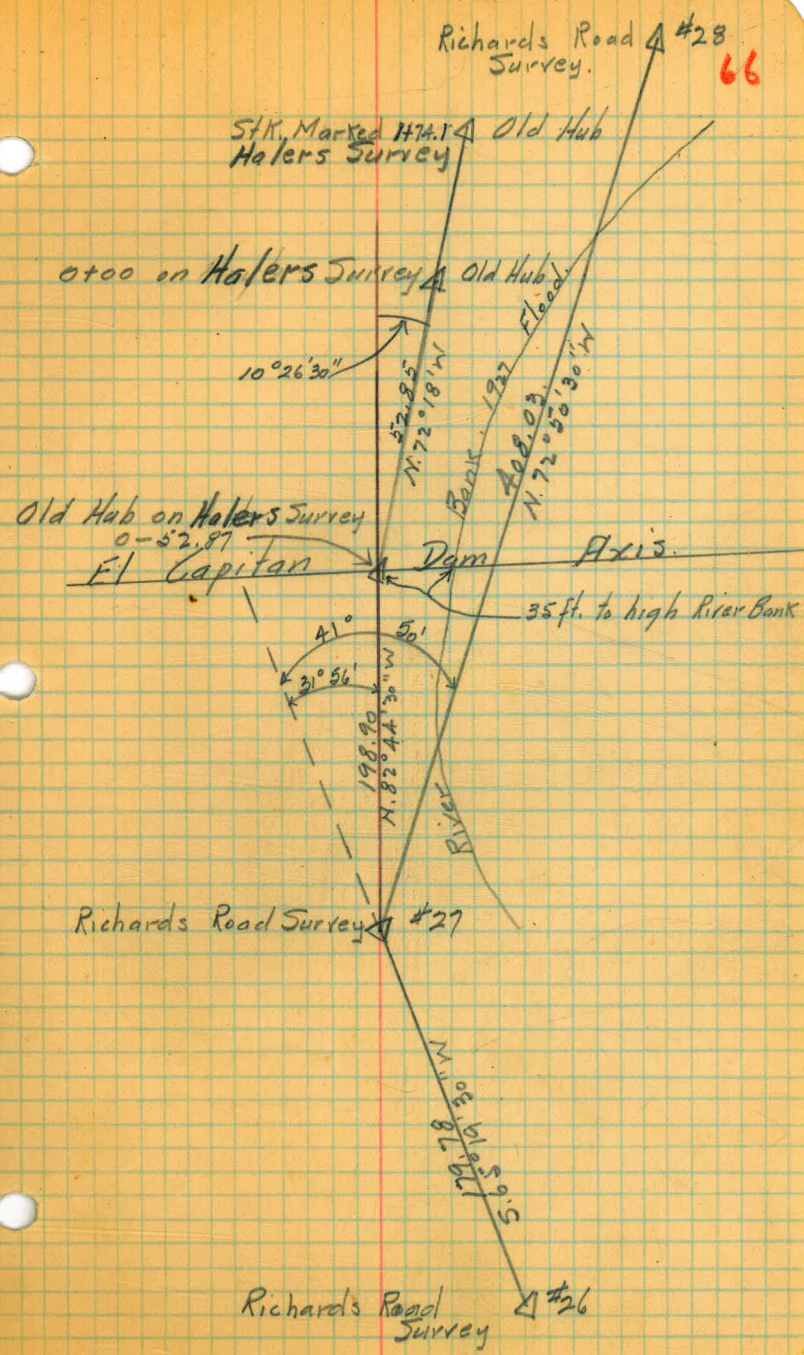 Richards Road #28
Survey.
66
Stk. Marked 1+74.1 Old Hub
Halers Survey
0+00 on Halers Survey Old Hub
10°26'30"
52.85
N.72°18'W
Bank, 1927 Flood
408.03
N.72°50'30"W
Old Hub on Halers Survey
0-52.87
El Capitan Dam Axis.
35 ft. to high River Bank
41° 50'
31°56'
198.90
N.82°44'30"W
River
Richards Road Survey #27
S.65°19'30"W
179.78
Richards Road #26
Survey